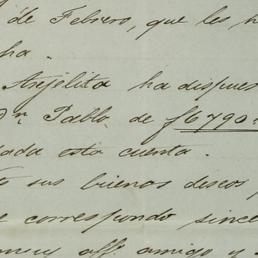 de Febrero, que les h
ha.
Anjelita ha dispues
Dn Pablo de $6790
ada esta cuenta.
sus buenos deseos
e correspondo since
muy aff. amigo y